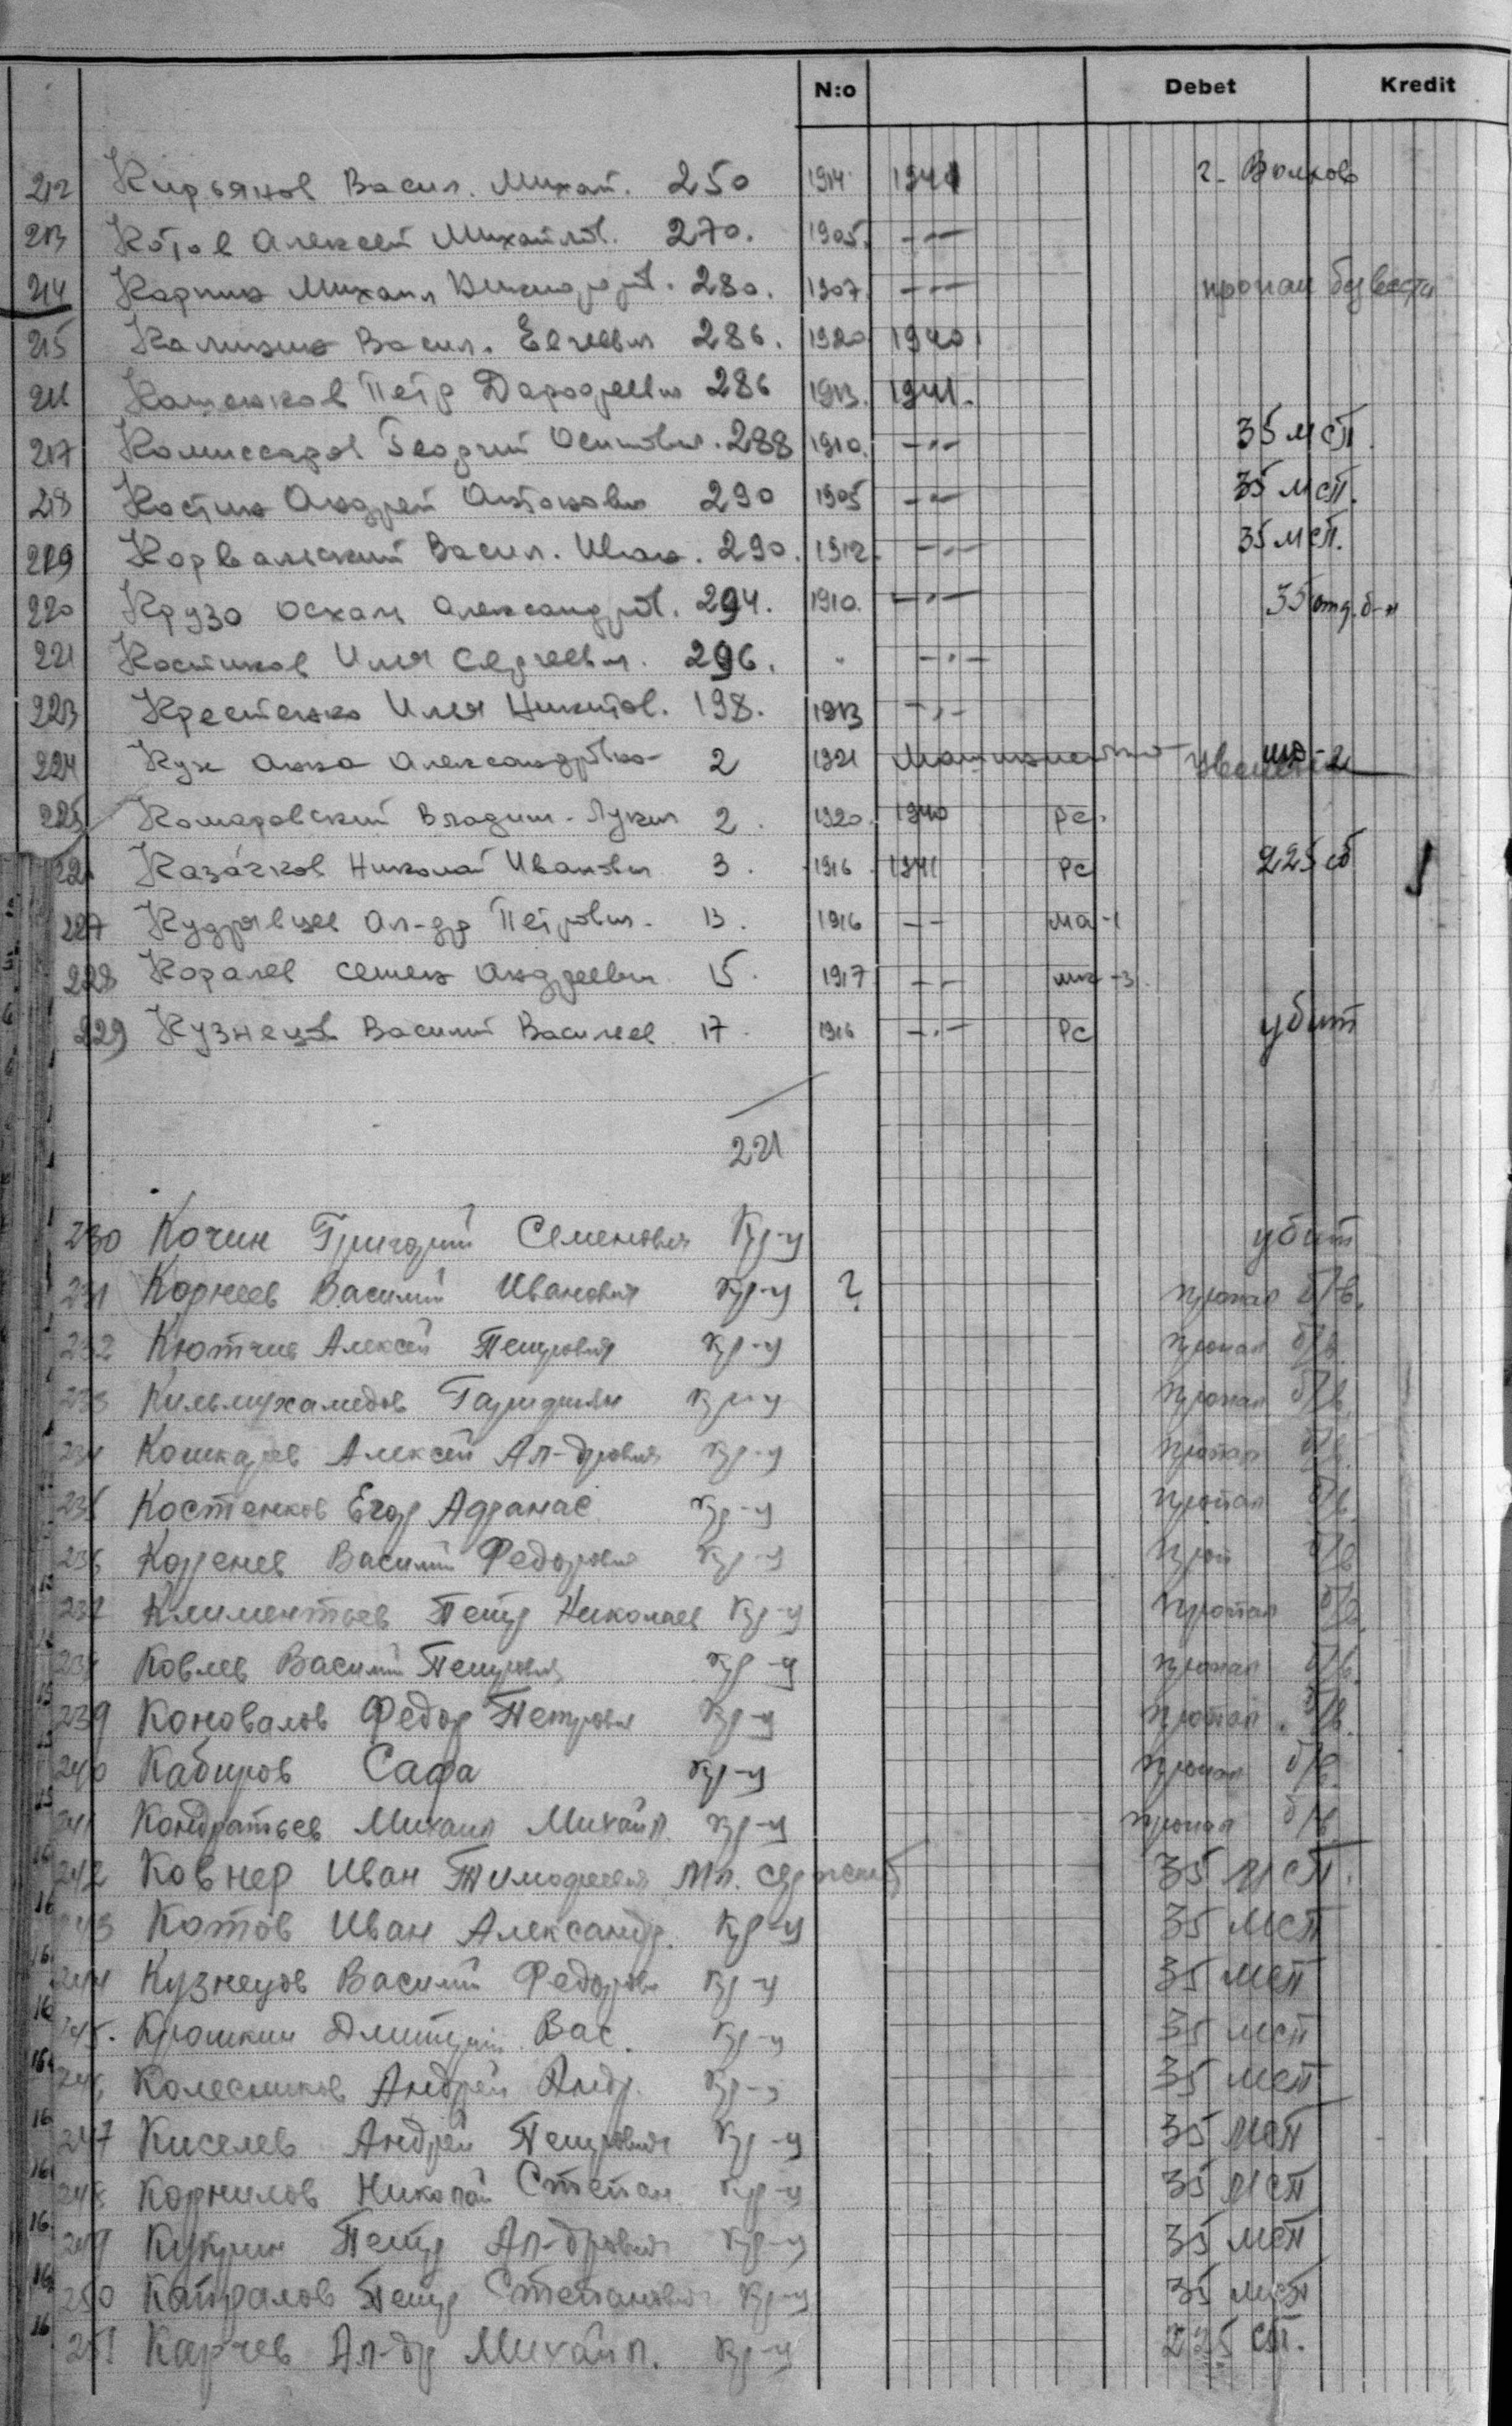 N:o Debet Kredit
212 Кирьянов Васил. Михай. 250 1914 1941 г. Волхов
213 Котов Алексей Михайлов. 270. 1905. -"-
214 Карпин Михаил 280. 1907. -"- пропал без вести
215 Калинин Васил. 286. 1920 1940
216 Петр 286 1913. 1941.
217 Комиссаров Георгий Осипович. 288 1910. -"- 35 мсп.
218 Костин Андрей Антонович 290 1905 -"- 35 мсп.
219 Васил. Иван. 290. 1912. -"- 35 мсп.
220 Крузо Оскар Александров. 294. 1910. -"- 35 отд. б-н
221 Костиков Илья Сергеевич. 296. " -"-
223 Крестенко Илья Никитов. 198. 1913 -"-
224 Кук Анна Александровна 2 1921
225 Комаровский Владим. Лукич 2. 1920. 1940 РС.
Казачков Николай Иванович 3. 1916 1941 РС 225 сб
227 Кудрявцев Ал-др Петрович. 13. 1916 -"-
228 Королев Семен Андреевич 15. 1917 -"-
229 Кузнецов Василий Василев 17. 1916 -"- РС убит
221
230 Кочин Григорий Семенович Кр-ц убит
231 Корнеев Василий Иванович Кр-ц ? пропал б/в.
232 Алексей Петрович Кр-ц пропал б/в.
233 Кильмухамедов Кр-ц пропал б/в.
234 Кошкарев Алексей Ал-дрович Кр-ц пропал б/в.
235 Костенков Егор Афанас. Кр-ц пропал б/в.
236 Коренев Василий Федорович Кр-ц проп б/в
237 Климентьев Петр Николаев Кр-ц пропал б/в.
Ковлев Василий Петрович Кр-ц пропал б/в.
239 Коновалов Федор Петрович Кр-ц пропал. б/в.
240 Кабиров Сафа Кр-ц пропал б/в.
241 Кондратьев Михаил Михайл. Кр-ц пропал б/в
242 Ковнер Иван Тимофеевич Мл. сержант 35 мсп.
Котов Иван Александр. Кр-ц 35 мсп
244 Кузнецов Василий Федоров Кр-ц 35 мсп
Крошкин Дмитрий Вас. Кр-ц 35 мсп
Колесников Андрей Андр. Кр-ц 35 мсп
247 Киселев Андрей Петрович Кр-ц 35 мсп
248 Корнилов Николай Степан Кр-ц 35 мсп
249 Кукрин Петр Ал-дрович Кр-ц 35 мсп
250 Петр Степанович Кр-ц 35 мсп
251 Карчев Ал-др Михайл. Кр-ц 225 сп.